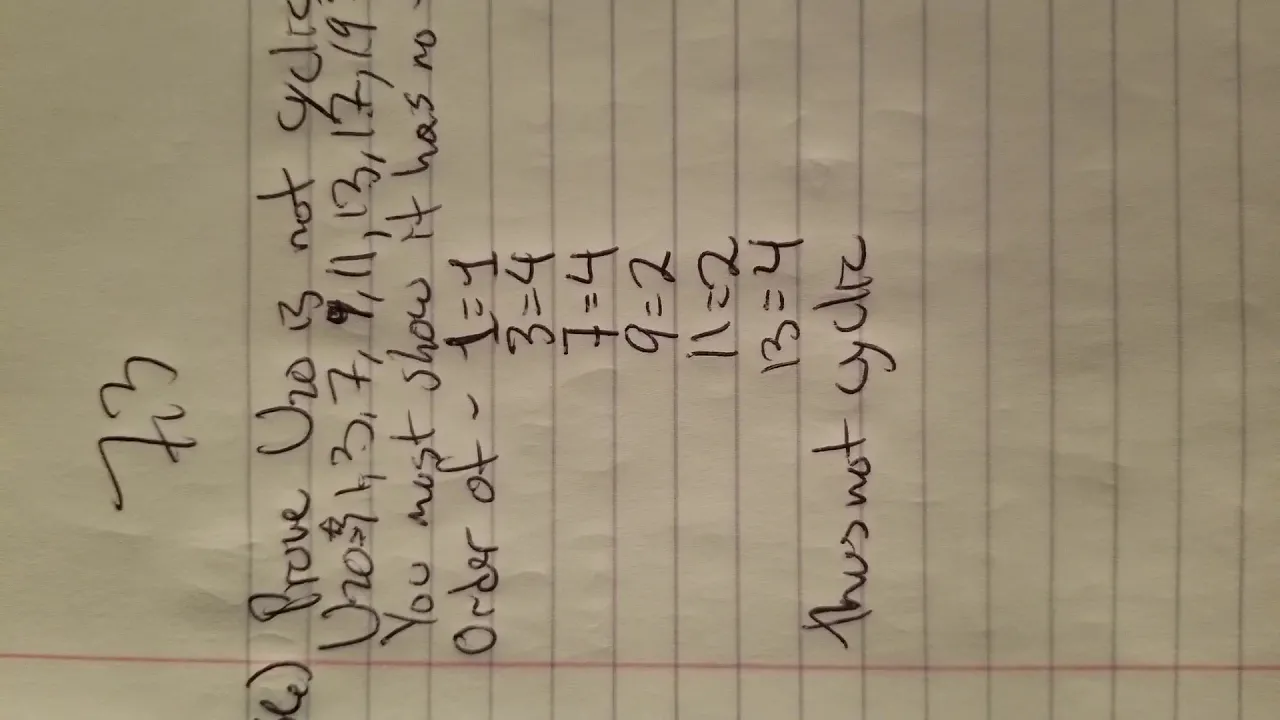 7.3
Prove U20 is not cyclic
U20={1,3,7,9,11,13,17,19
You must show it has no
Order of - 1=1
3=4
7=4
9=2
11=2
13=4
thus not cyclic